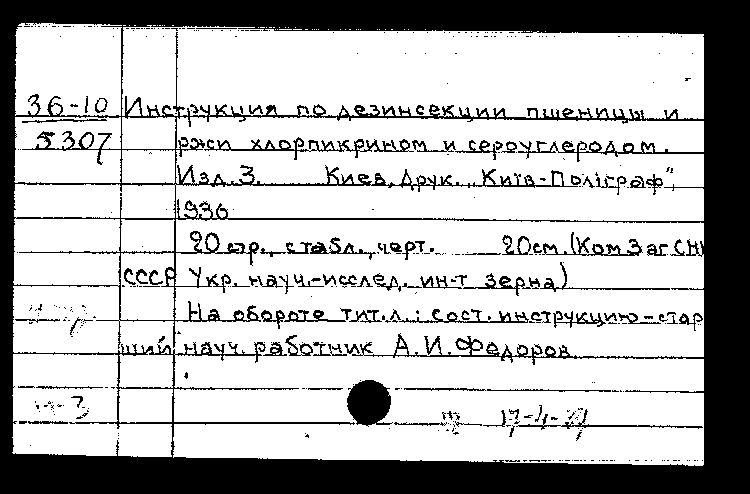 36-10 Инструкция по дезинсекции пшеницы и
5307 ржи хлорпикрином и сероуглеродом.
Изд. 3. Киев, Друк. „Київ-Поліграф",
1936
20 стр., с табл., черт. 20см. (КомЗагСНК
СССР Укр. науч.-исслед. ин-т зерна)
На обороте тит.л.: сост. инструкцию-стар
ший науч. работник А.И.Федоров.